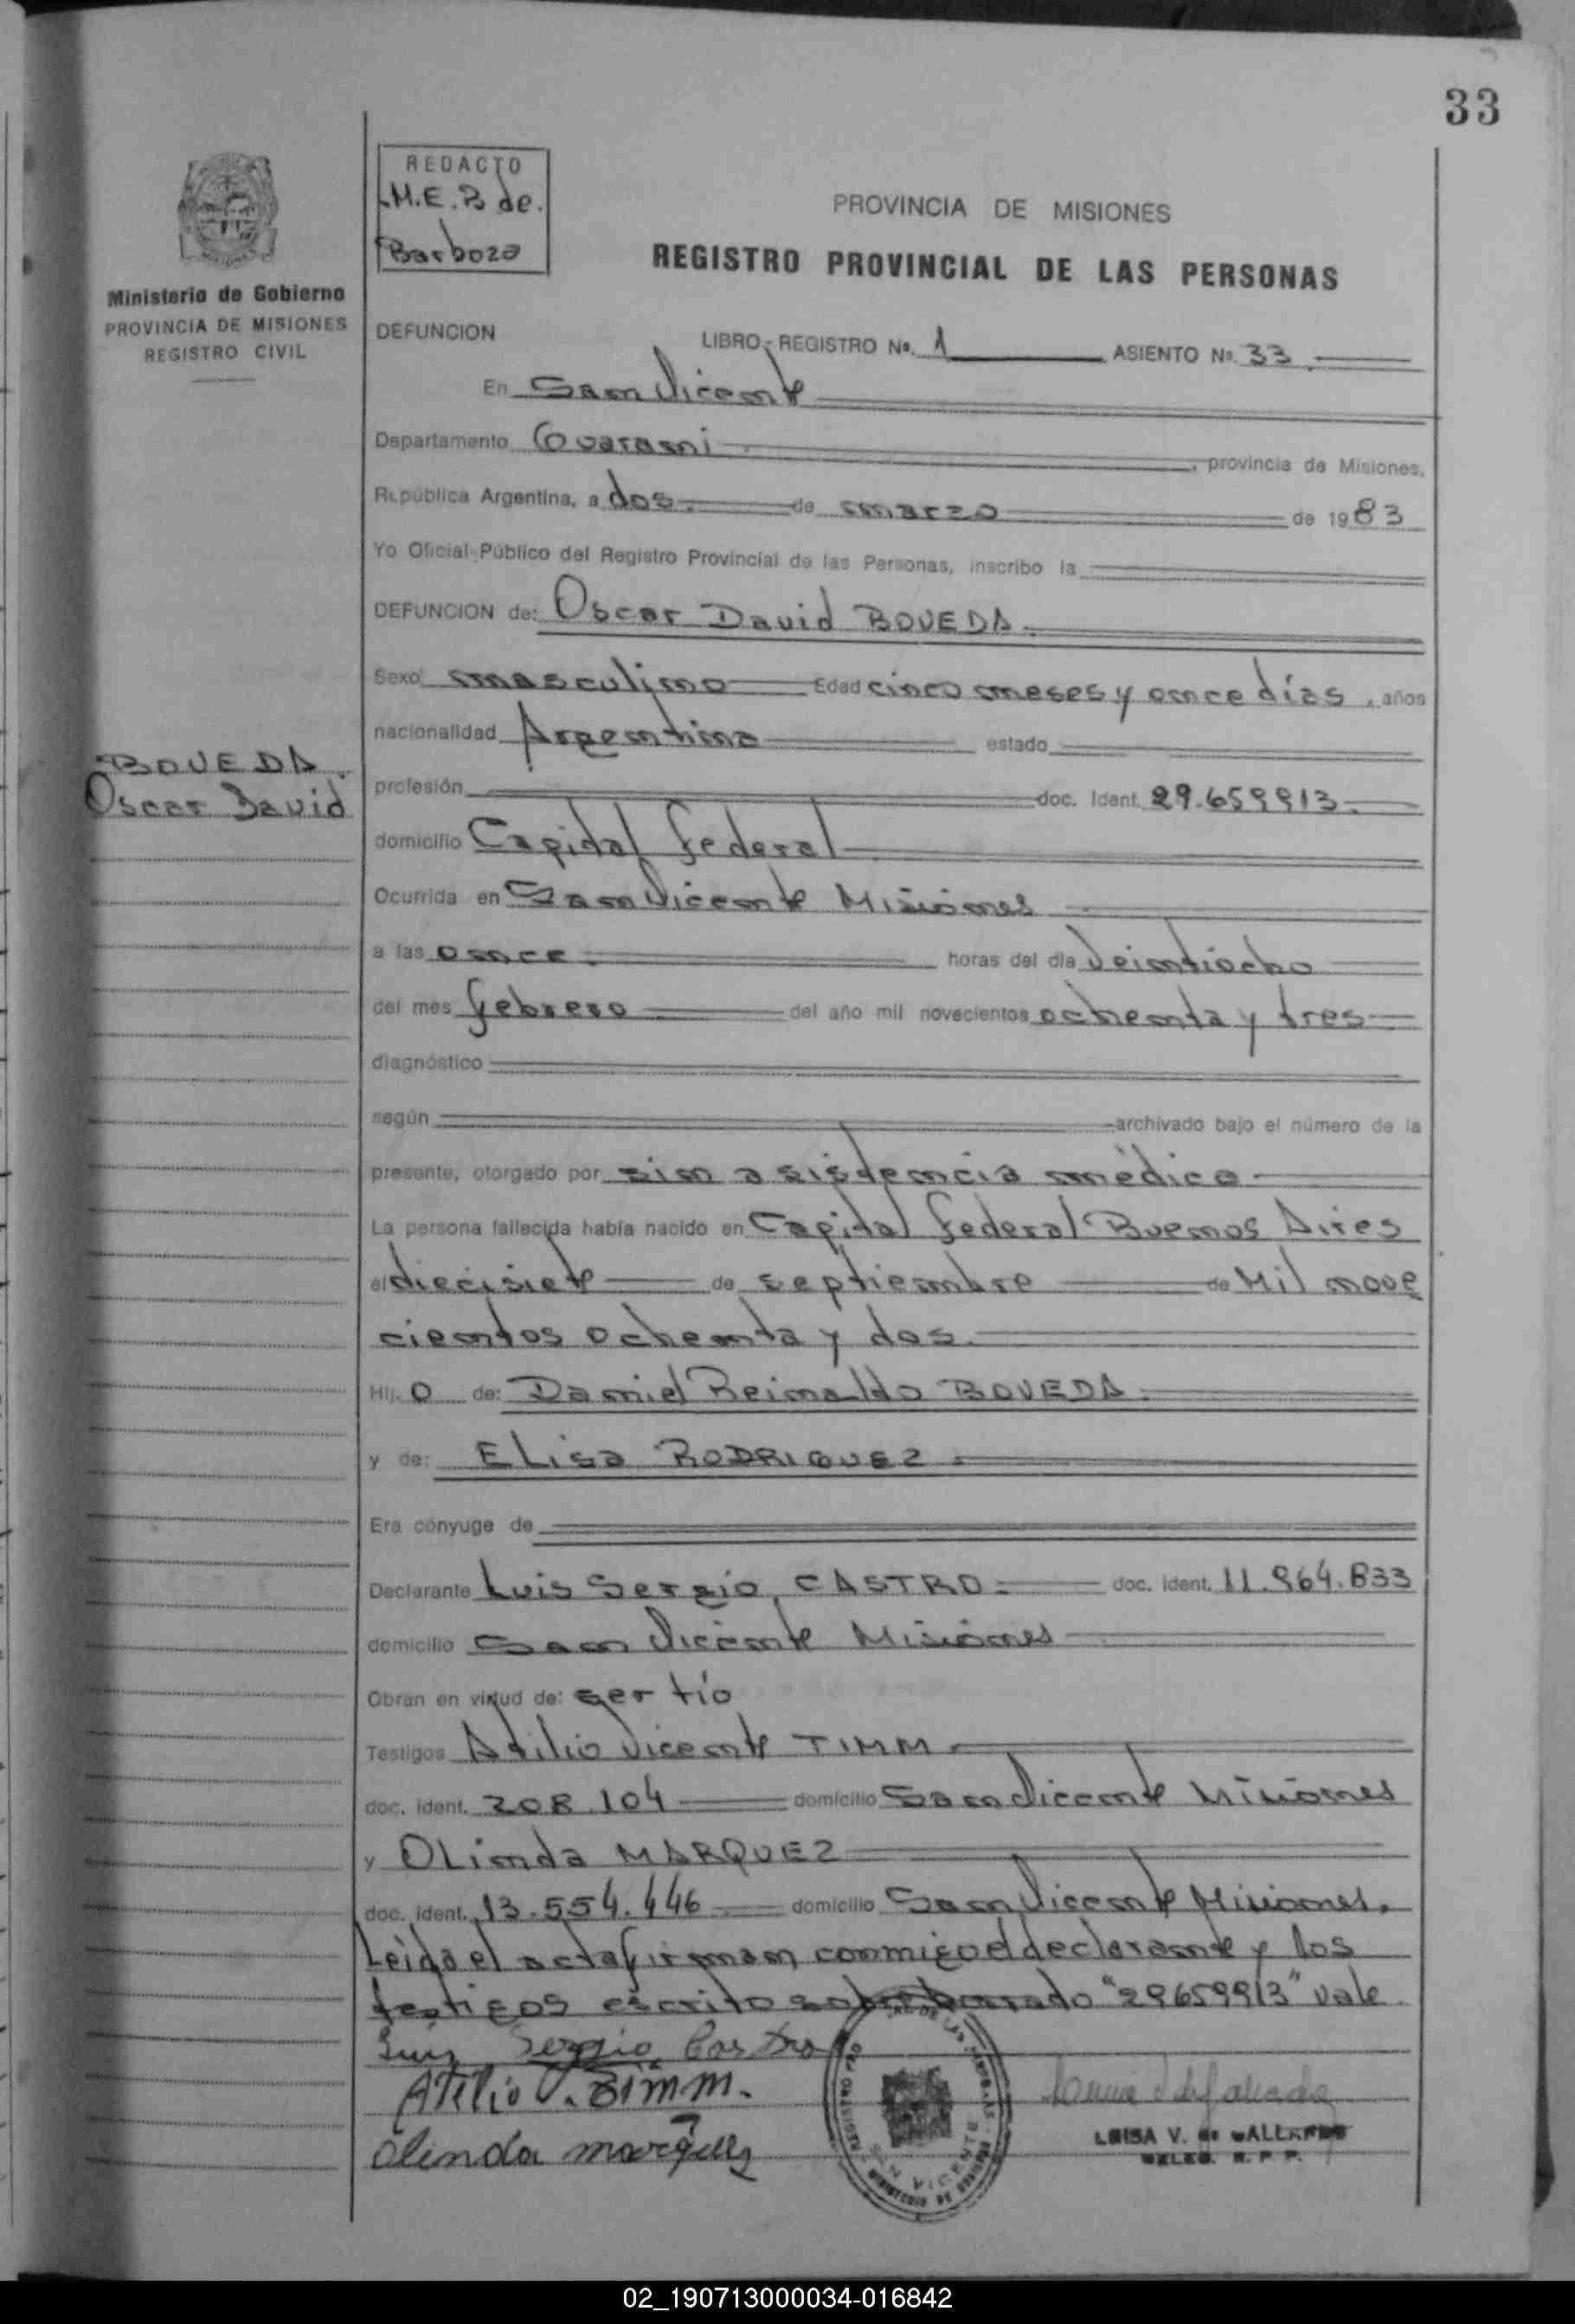 33
REDACTO
M.E.B de.
Barbozo
PROVINCIA DE MISIONES
REGISTRO PROVINCIAL DE LAS PERSONAS
Ministerio de Gobierno
PROVINCIA DE MISIONES
REGISTRO CIVIL
DEFUNCION LIBRO-REGISTRO No. 1 ASIENTO No. 33
En San Vicente
Departamento Guarani, provincia de Misiones,
República Argentina, a dos de marzo de 1983
Yo Oficial Público del Registro Provincial de las Personas, inscribo la
DEFUNCION de: Oscar David BOVEDA
Sexo masculino Edad cinco meses y once días, años
nacionalidad Argentina estado
BOVEDA
Oscar David
profesión doc. Ident. 29.659913
domicilio Capital Federal
Ocurrida en San Vicente Misiones
a las once horas del día veintiocho
del mes febrero del año mil novecientos ochenta y tres
diagnóstico
según archivado bajo el número de la
presente, otorgado por sin asistencia médica
La persona fallecida había nacido en Capital Federal Buenos Aires
el diecisiete de septiembre de Mil nove
cientos ochenta y dos.
Hij o de: Daniel Reinaldo BOVEDA
y de: ELisa RODRIGUEZ
Era cónyuge de
Declarante Luis Sergio CASTRO doc. ident. 11.964.833
domicilio San Vicente Misiones
Obran en virtud de: ser tío
Testigos Atilio Vicente TIMM
doc. ident. 208.104 domicilio San Vicente Misiones
y OLinda MARQUEZ
doc. ident. 13.554.446 domicilio San Vicente Misiones.
Leida el acta firman conmigo el declarante y los
testigos escrito sobreborrado "29659913" vale.
Luis Sergio Castro
Atilio V. Timm.
Olinda marquez
SAN VICENTE
LUISA V. de
DELEG. R. P. P.
02_190713000034-016842